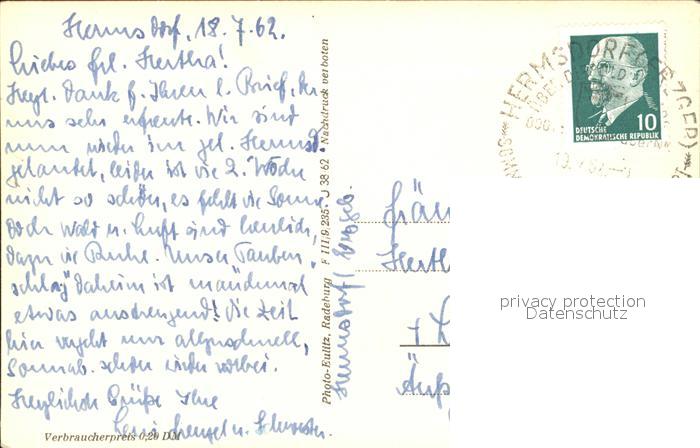 Hermsdorf, 18.7.62.
Liebes Frl. Hertha!
Herzl. Dank f. Ihren l. Brief, der
uns sehr erfreute. Wir sind
nun wieder im gel. Hermsd.
gelandet, leider ist die 2. Woche
nicht so schön, es fehlt die Sonne.
Doch Wald u. Luft sind herrlich,
dazu die Ruhe. Unser Tauben-
schlag daheim ist manchmal
etwas anstrengend! Die Zeit
hier vergeht nur allzuschnell,
Sonnab. schon wieder vorbei.
Herzlichste Grüße Ihre
u. Schwester.
Verbraucherpreis 0,20 DM
Photo-Eulitz, Radeburg F III/9/235. J 38 62 Nachdruck verboten
Hermsdorf/Erzgeb.
HERMSDORF (ERZGEB)
10
DEUTSCHE
DEMOKRATISCHE REPUBLIK
Fräu
Herth
privacy protection
Datenschutz